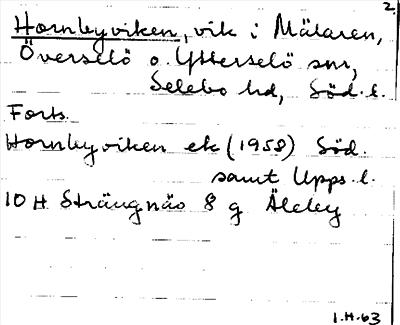 2.
Hornbyviken, vik i Mälaren,
Överselö o. Ytterselö snr,
Selebo hd, Söd. l.
Forts.
Hornbyviken ek (1958) Söd.
samt Upps. l.
10 H Strängnäs 8 g Äleby
1.H.63